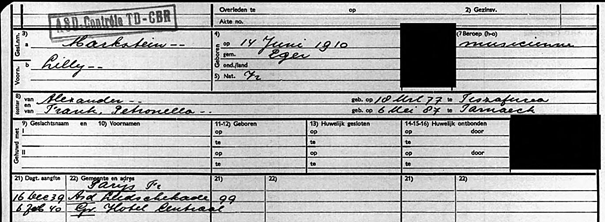 A.S.D. Contrôle TD-CBR
Overleden te op 2) Gezinsv.
Akte no.
Gesl.nm. 3) a Markstein --
Voorn. b Lilly --
Geboren 4) op 14 Juni 1910
gem. Eger
ond./land
5) Nat. Fr
7) Beroep (h-o)
musicienne
8) van Alexander -- geb. op 18 77 te
en van Frank, Petronella -- geb. op 6 Mei 87 te
Gehuwd met 9) Geslachtsnaam en 10) Voornamen 11-12) Geboren 13) Huwelijk gesloten 14-15-16) Huwelijk ontbonden
I op op op door
te te te
II op op op door
te te te
21) Dagt. aangifte 22) Gemeente en adres 21) 22) 21) 22)
Parijs Fr
16 Dec 39 Asd Leidschekade 99
6 Feb 40 Gr. Hotel Centraal